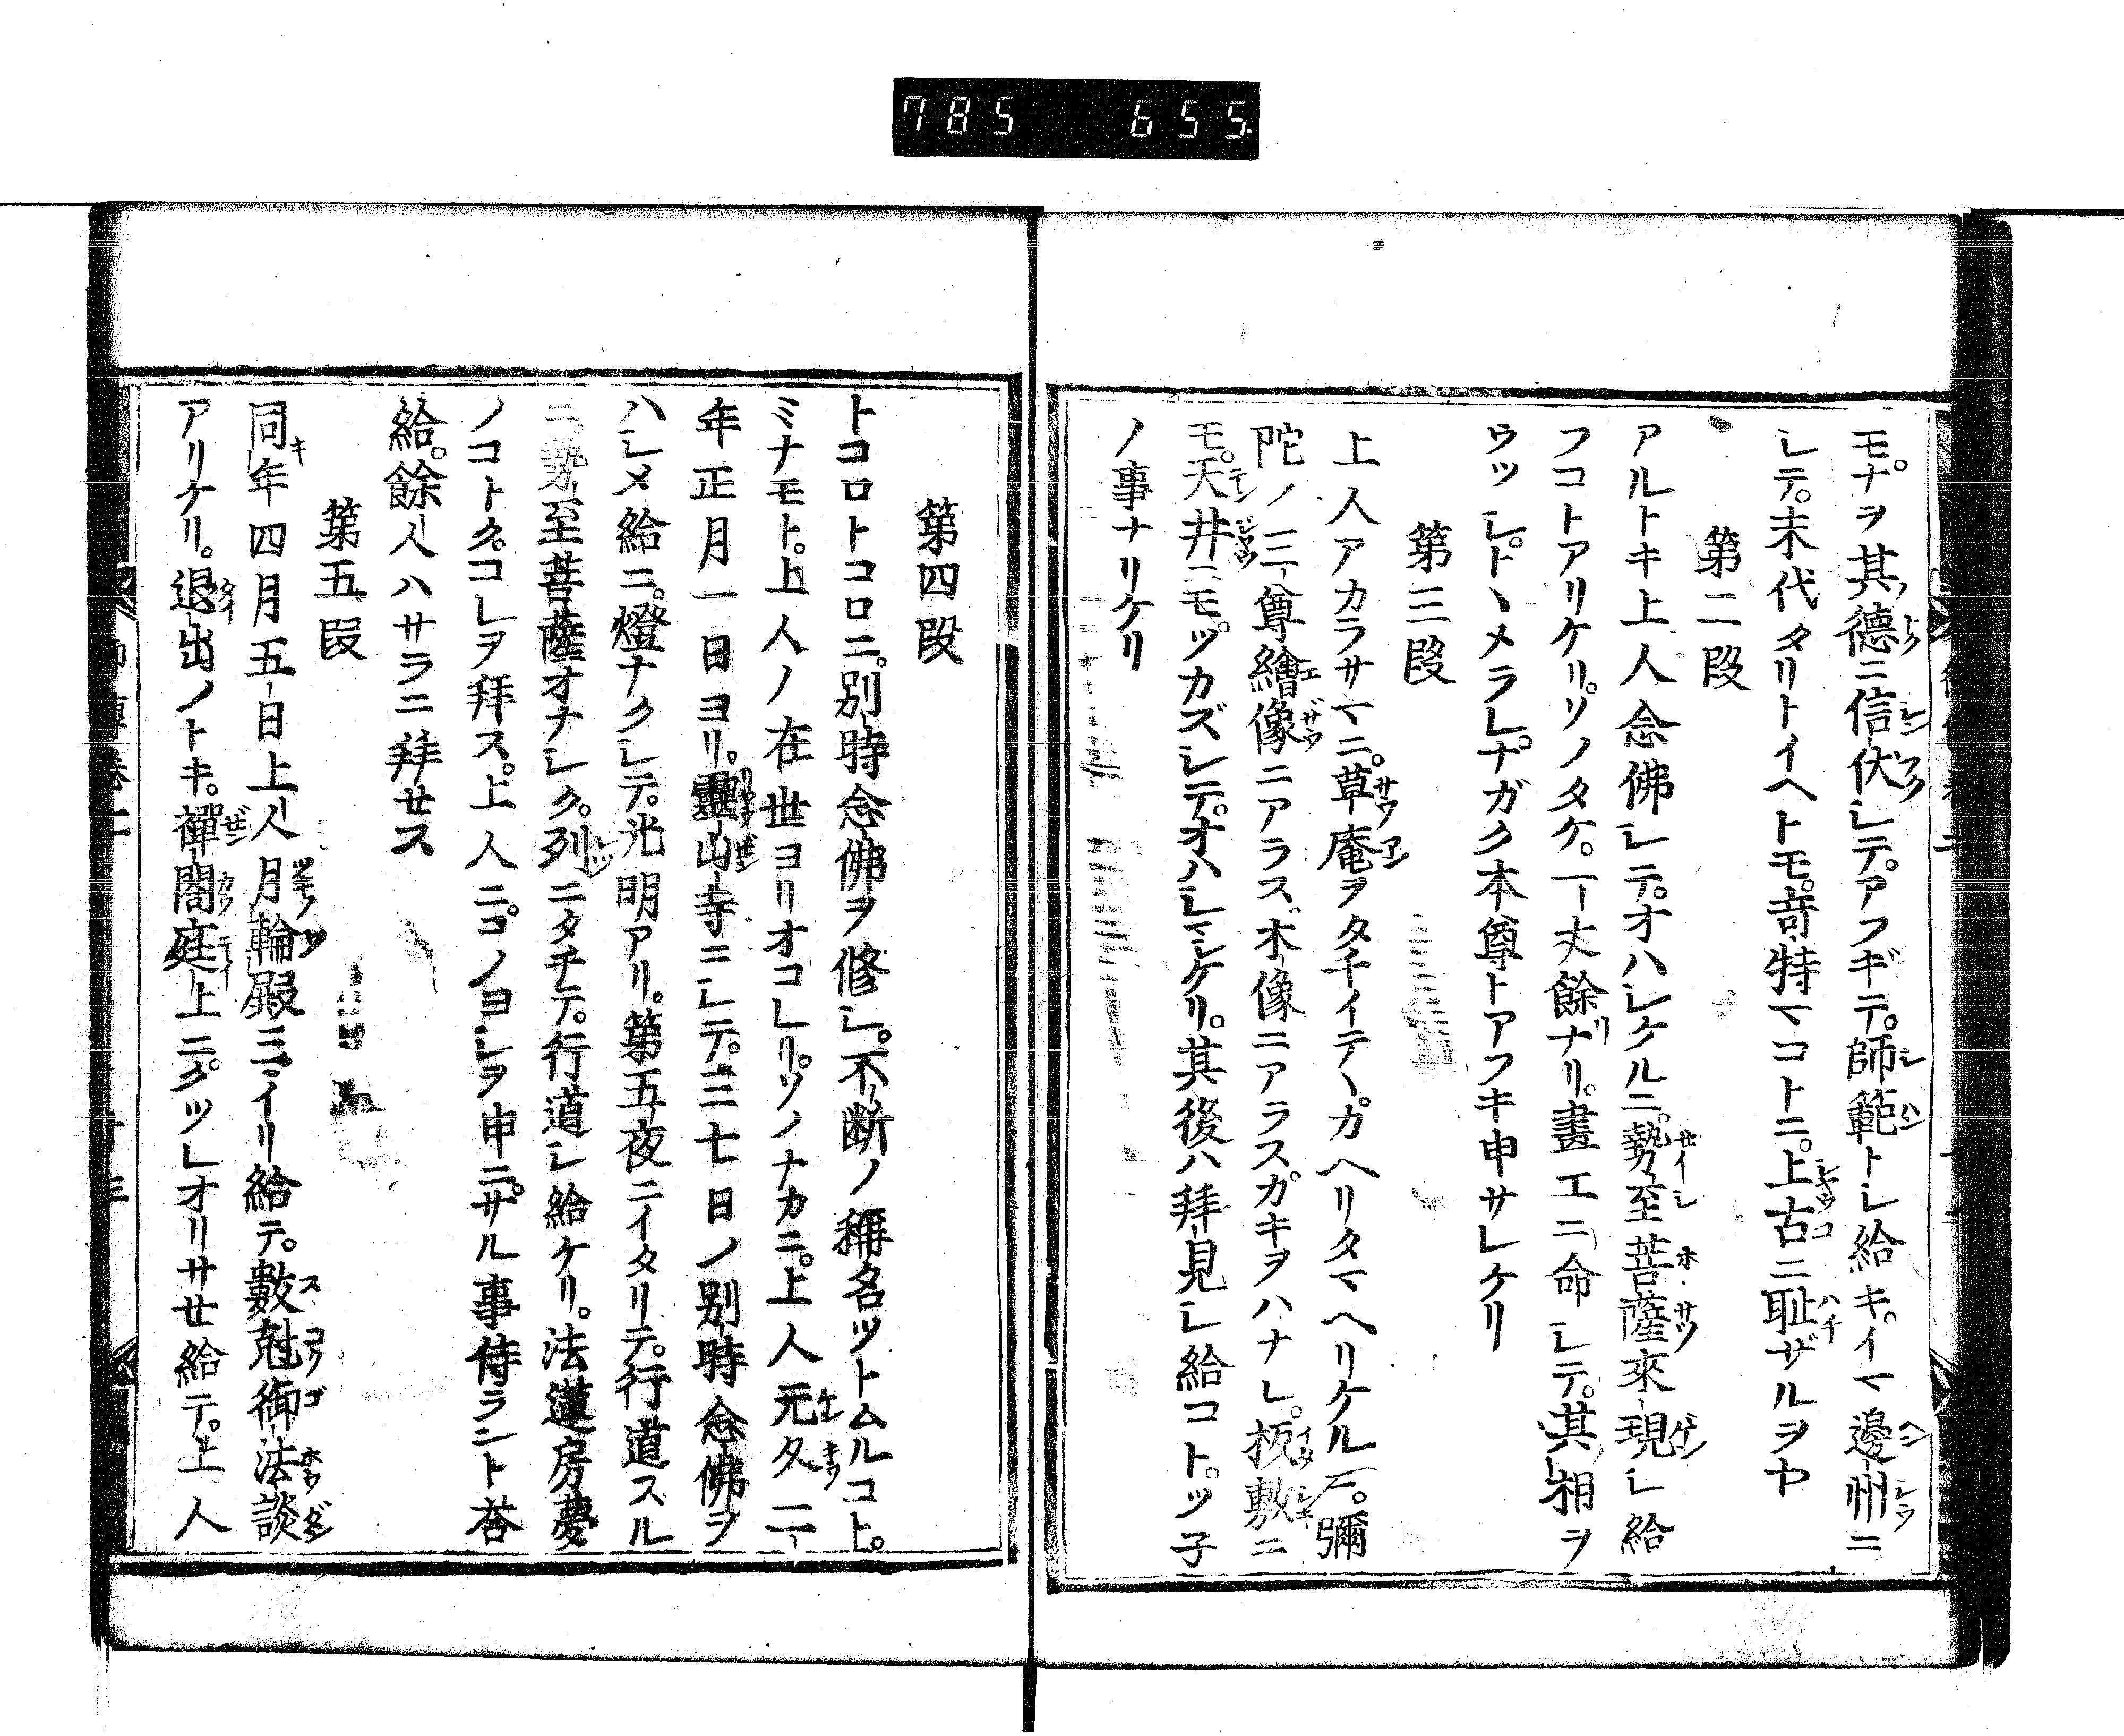 785 655
モ。ナヲ其德ニ信伏シテ。アフギテ。師範トシ給キ。イマ邊州ニ
シテ。末代タリトイヘトモ。奇特マコトニ。上古ニ耻ザルヲヤ
第二段
アルトキ上人念佛シテ。オハシケルニ。勢至菩薩來現シ給
フコトアリケリ。ソノタケ。一丈餘ナリ。畫工ニ命シテ。其相ヲ
ウツシ。トヽメラレ。ナガク本尊トアフキ申サレケリ
第三段
上人アカラサマニ。草庵ヲタチイテヽ。カヘリタマヘリケルニ。彌
陀ノ三尊繪像ニアラス。木像ニアラス。カキヲハナレ。板敷ニ
モ。天井ニモ。ツカズシテ。オハシマシケリ。其後ハ拜見シ給コト。ツ子
ノ事ナリケリ
第四段
トコロトコロニ。別時念佛ヲ修シ。不断ノ稱名ツトムルコト。
ミナモト。上人ノ在世ヨリオコレリ。ソノナカニ。上人元久二
年正月一日ヨリ。靈山寺ニシテ。三七日ノ別時念佛ヲ
ハシメ給ニ。燈ナクシテ。光明アリ。第五夜ニイタリテ。行道スル
ニ。勢至菩薩オナシク。列ニタチテ。行道シ給ケリ。法蓮房夢
ノコトク。コレヲ拜ス。上人ニ。コノヨシヲ申ニ。サル事侍ラント荅
給。餘人ハサラニ拜セス
第五段
同年四月五日上人月輪殿ニマイリ給テ。數尅御法談
アリケリ。退出ノトキ。禪閤庭上ニ。クツレオリサセ給テ。上人